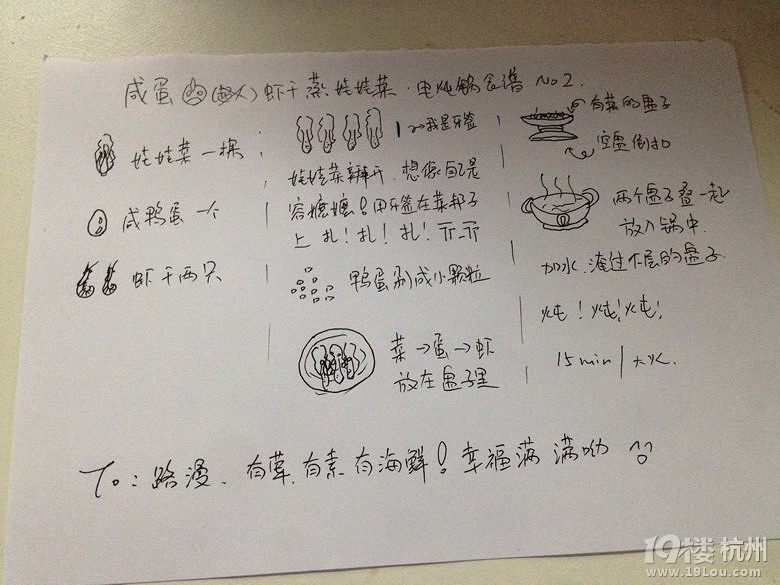 咸蛋(超人)虾干蒸娃娃菜·电炖锅食谱 No2.
娃娃菜一棵
咸鸭蛋一个
虾干两只
我是牙签
娃娃菜瓣开.想像自己是
容嬷嬷!用牙签在菜邦子
上扎!扎!扎!
鸭蛋剁成小颗粒
菜→蛋→虾
放在盘子里
有菜的盘子
空盘倒扣
两个盘子叠一起
放入锅中.
加水.淹过下层的盘子.
炖!炖!炖!
15min/大火.
To:路漫、有荤.有素.有海鲜!幸福满满呦
19楼杭州
www.19lou.com